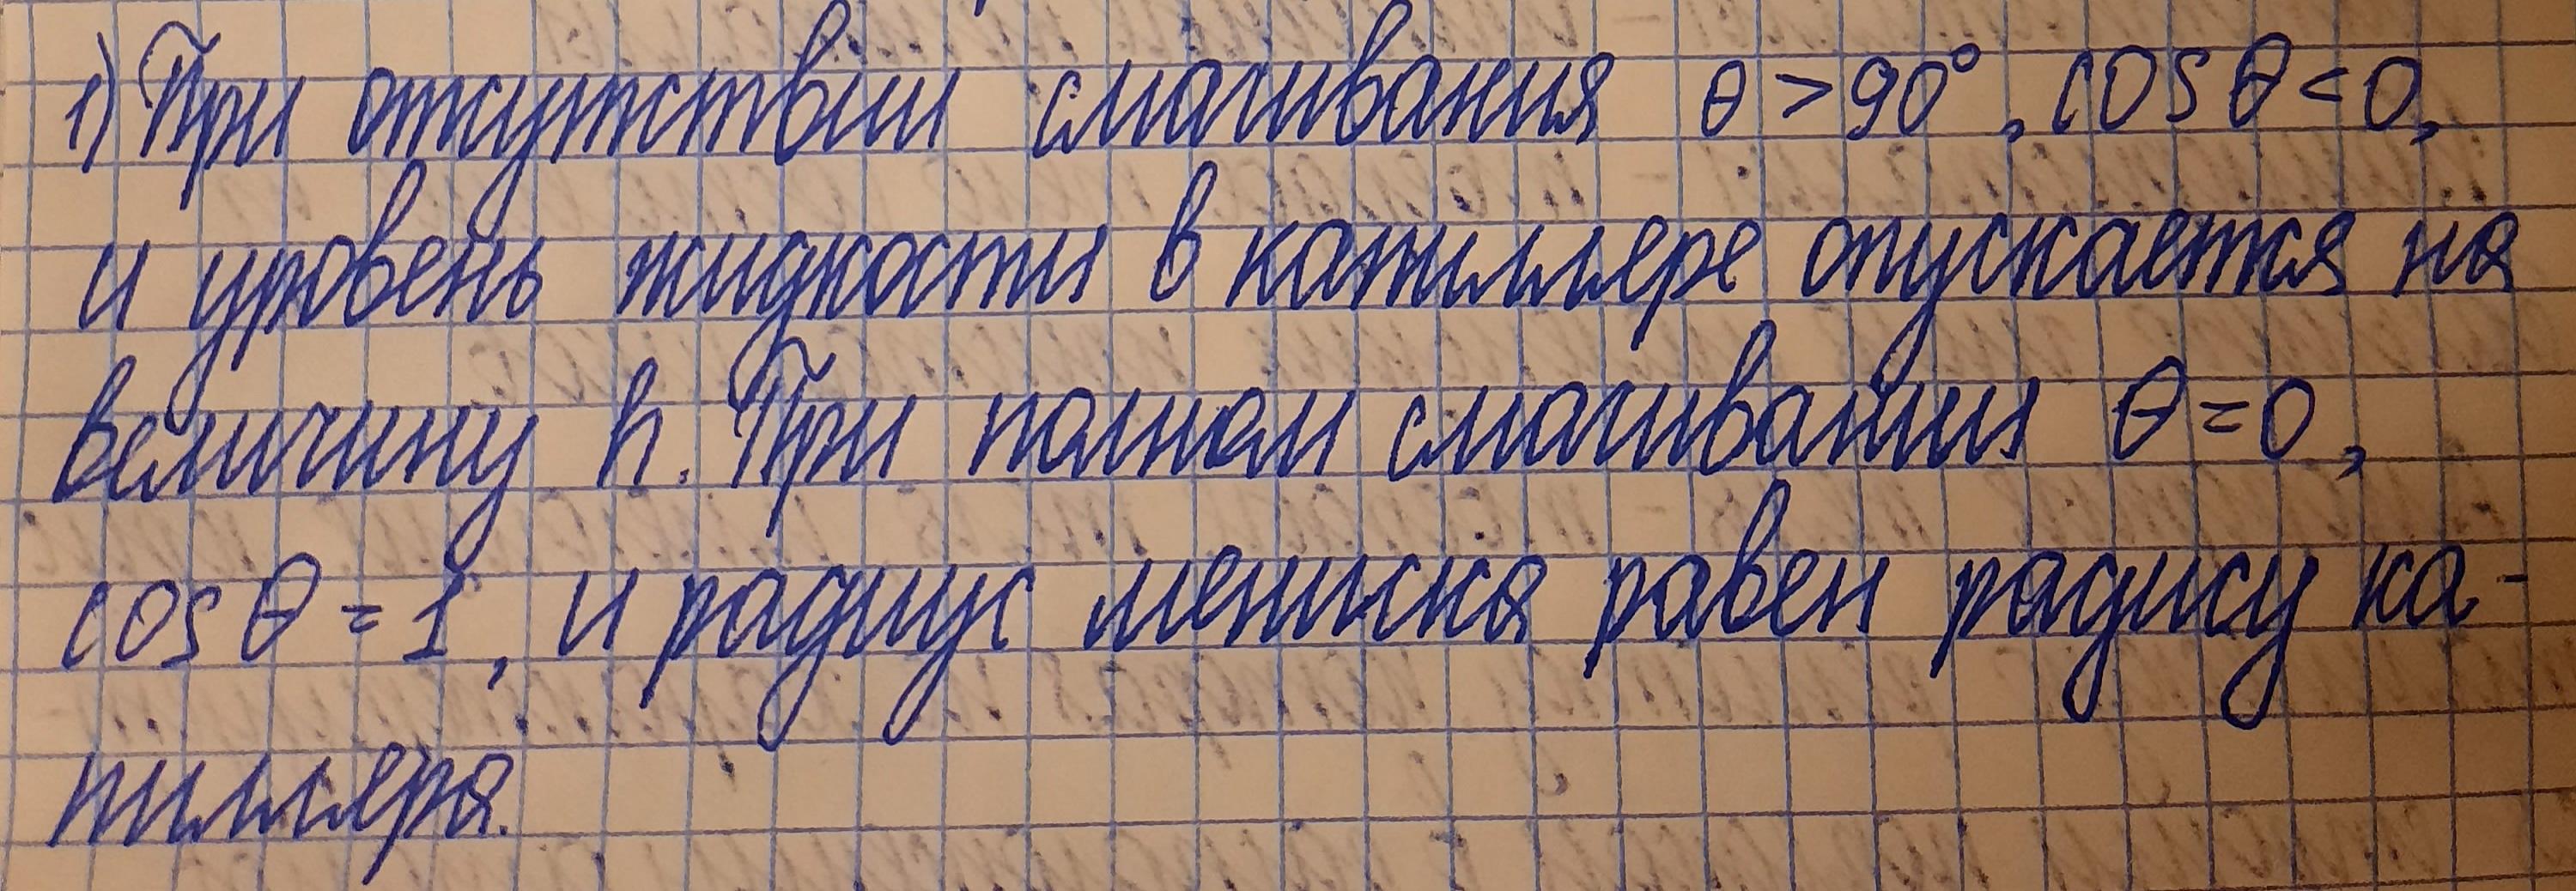 1) При отсутствии смачивания θ > 90°, cos θ < 0,
и уровень жидкости в капилляре опускается на
величину h. При полном смачивании θ = 0,
cos θ = 1, и радиус мениска равен радиусу ка-
пилляра.